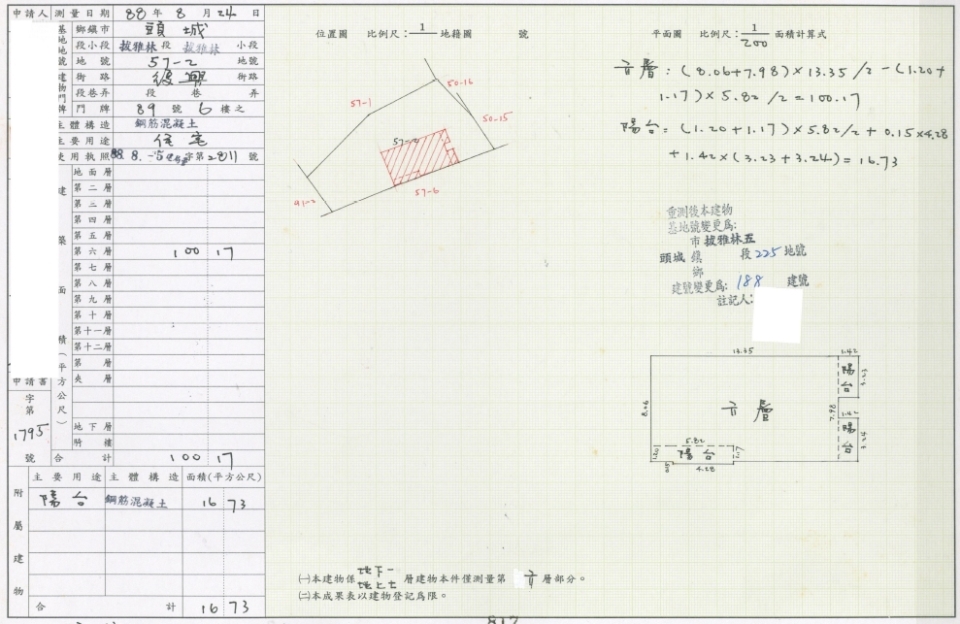 申請人 測量日期 88年8月24日
鄉鎮市 頭城
段小段 拔雅林 段 拔雅林 小段
地號 57-2 地號
街路 街路
段巷弄 段 巷 弄
門牌 89 號 6 樓之
主體構造 鋼筋混凝土
主要用途 住宅
使用執照 88. 8. -5 字第2811號
建築面積(平方公尺)
地面層
第二層
第三層
第四層
第五層
第六層 100 17
第七層
第八層
第九層
第十層
第十一層
第十二層
第 層
夾層
地下層
騎樓
合計 100 17
申請書
字第
1795
號
附屬建物
主要用途 主體構造 面積(平方公尺)
陽台 鋼筋混凝土 16 73
合計 16 73
位置圖 比例尺:1 地籍圖 號
57-1
50-16
50-15
57-2
57-6
91-2
平面圖 比例尺:1/200 面積計算式
六層:(8.06+7.98)×13.35/2-(1.20+
1.17)×5.82/2=100.17
陽台:(1.20+1.17)×5.82/2+0.15×4.28
+1.42×(3.23+3.24)=16.73
重測後本建物
基地號變更為:
市 拔雅林五
頭城 鎮 段 225 地號
鄉
建號變更為: 188 建號
註記人:
13.35
1.42
陽台
3.23
8.06
六層
7.98
1.42
陽台
3.24
5.82
1.20
陽台
1.17
0.15
4.28
㈠本建物係地下一地上七層建物本件僅測量第六層部分。
㈡本成果表以建物登記為限。